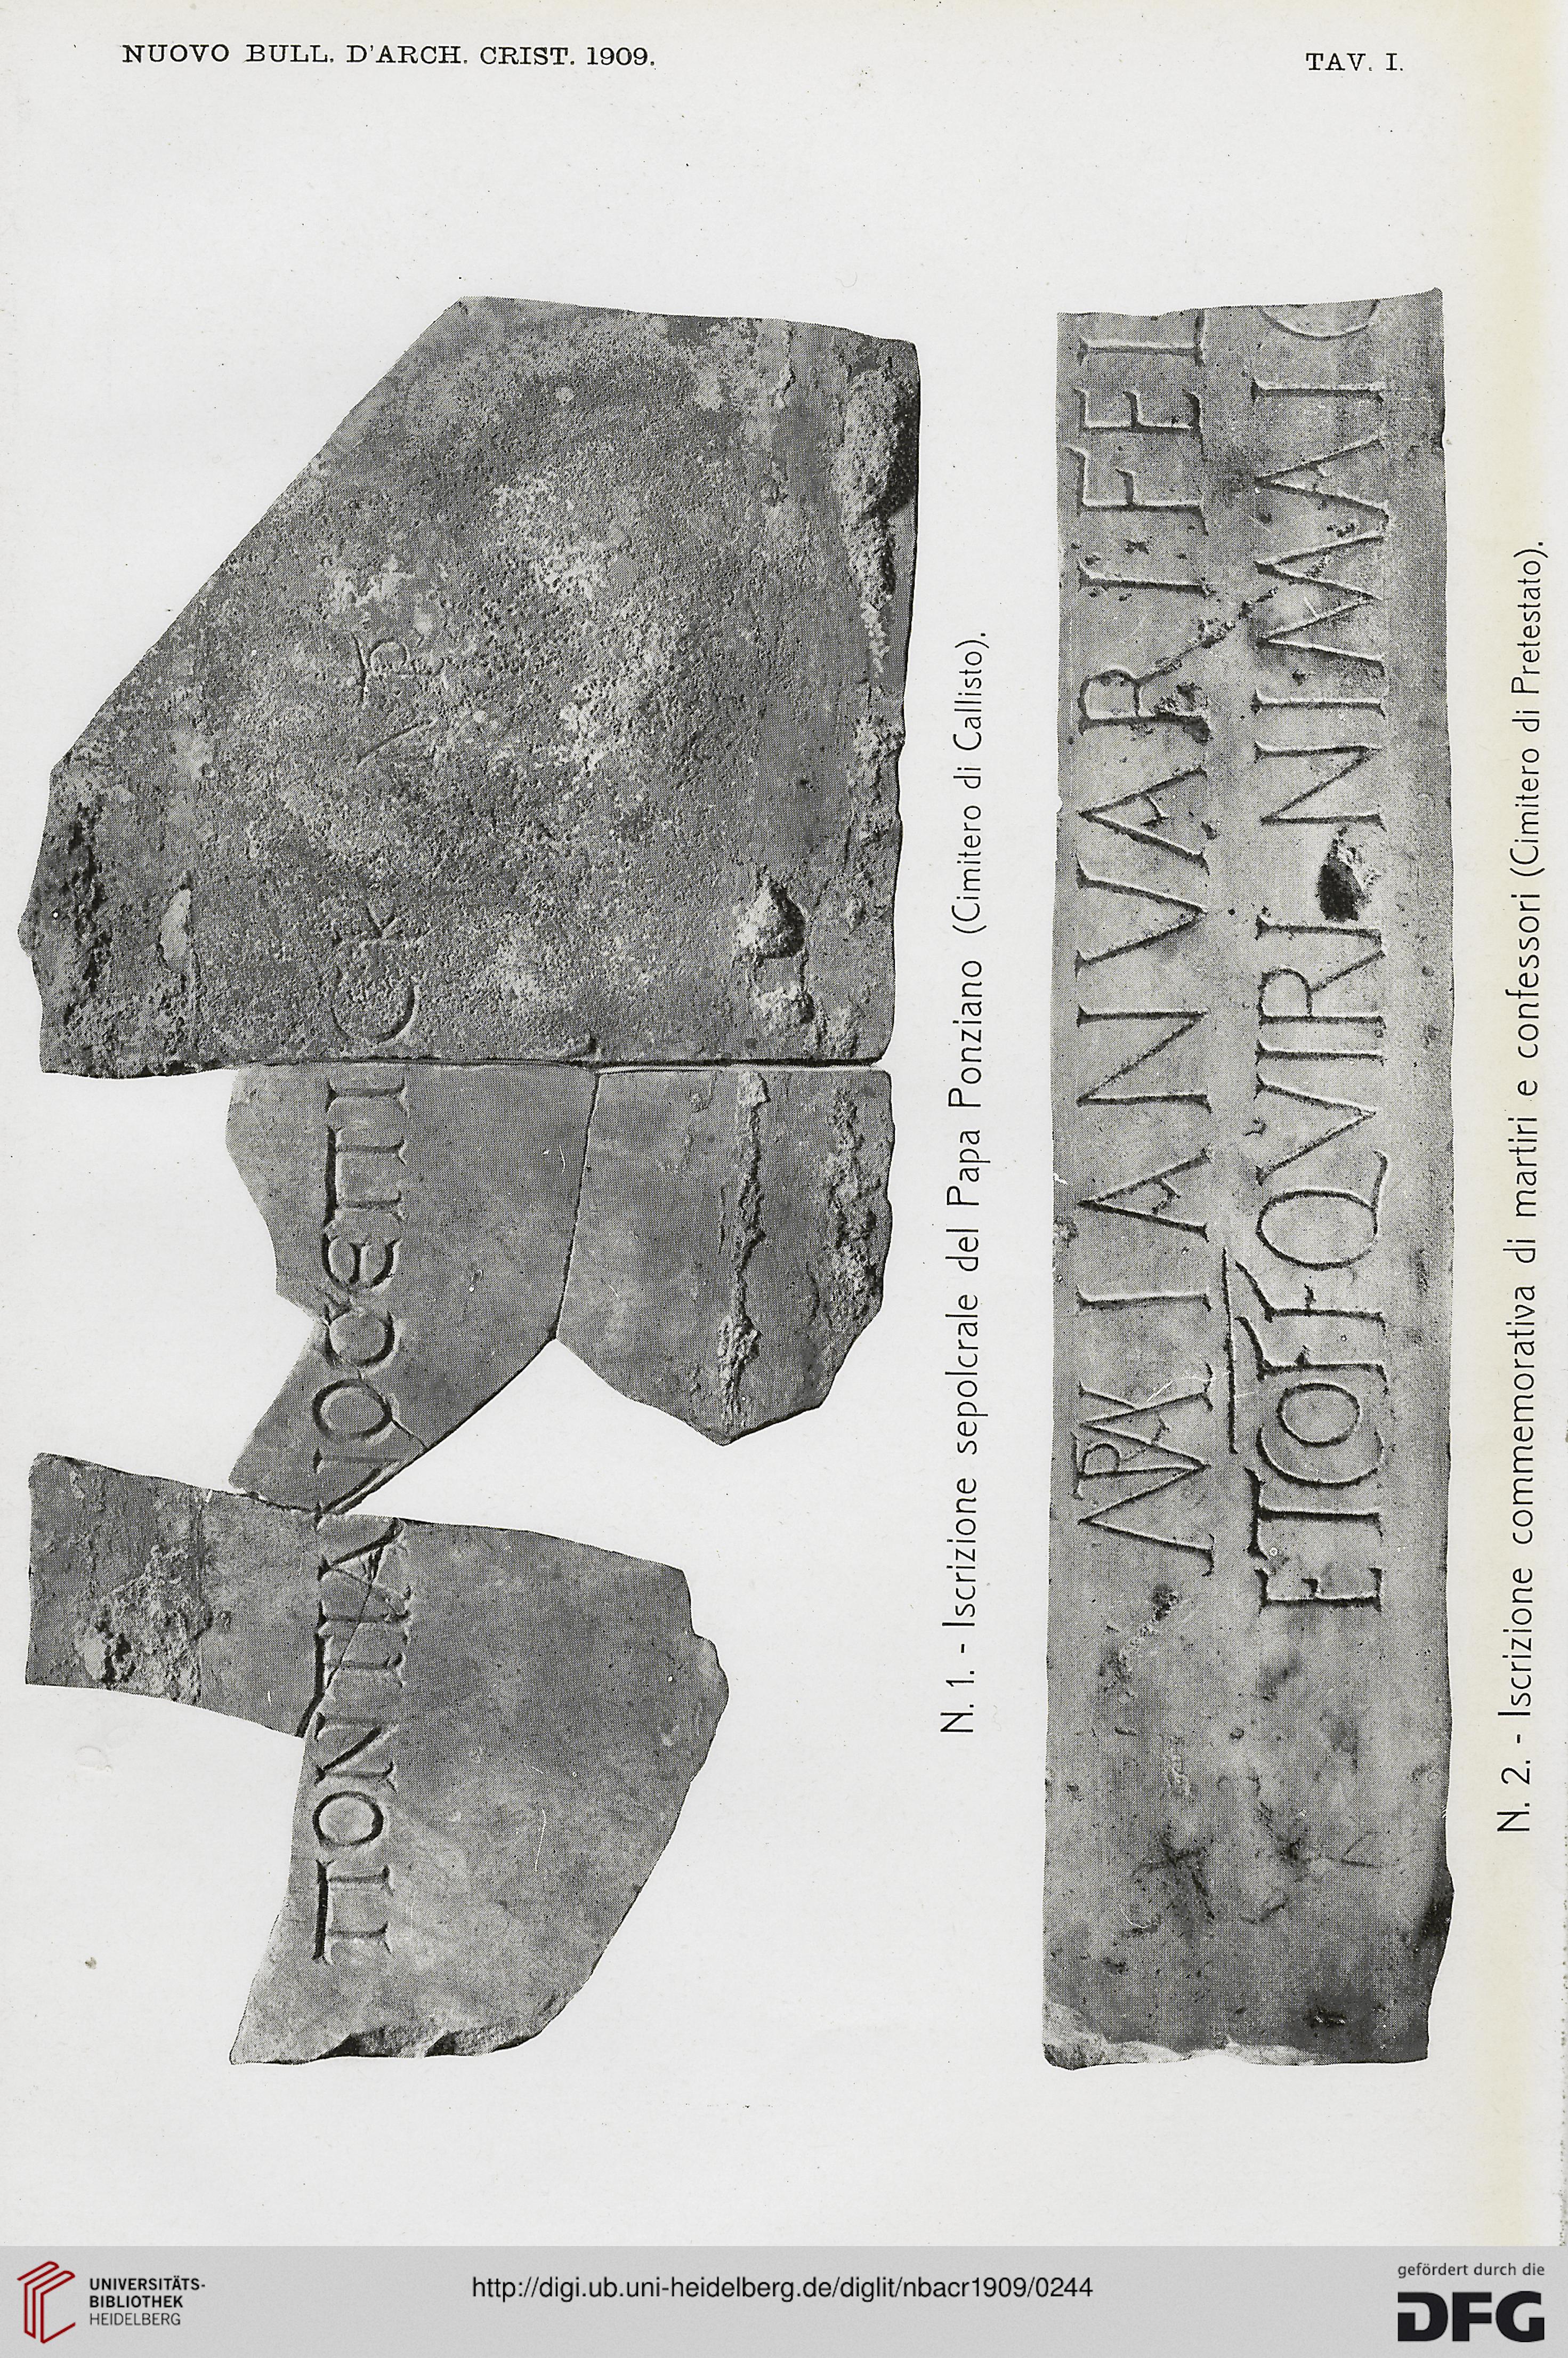 NUOVO BULL. D'ARCH. CRIST. 1909.
TAV. I.
ΠΟΝΤΙΑΝΟϹЄΠΙϹΚ
N. 1. - Iscrizione sepolcrale del Papa Ponziano (Cimitero di Callisto).
IANVARI FEL
ETCOFFQVIRINI MAIO
N. 2. - Iscrizione commemorativa di martiri e confessori (Cimitero di Pretestato).
UNIVERSITÄTS-
BIBLIOTHEK
HEIDELBERG
http://digi.ub.uni-heidelberg.de/diglit/nbacr1909/0244
gefördert durch die
DFG